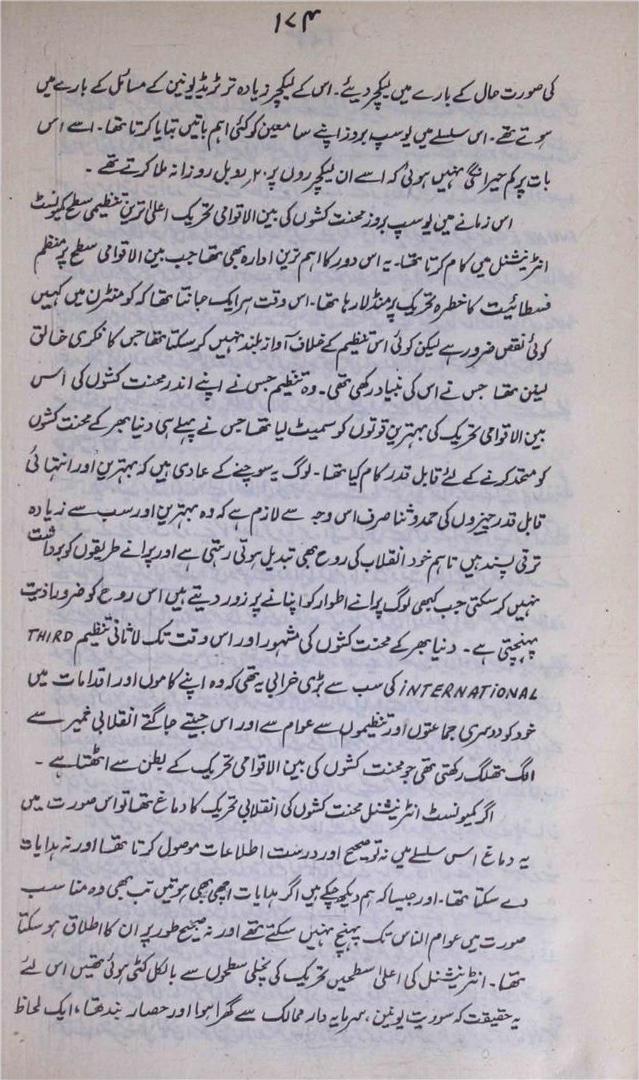 ۱۷۴
کی صورت حال کے بارے میں لیکچر دیئے۔ اس کے لیکچر زیادہ تر ٹریڈ یونین کے مسائل کے بارے میں
ہوتے تھے۔ اس سلسلے میں یوسپ بروز اپنے سامعین کو کئی اہم باتیں بتایا کرتا تھا۔ اسے اس
بات پر کم حیرانگی نہیں ہوئی کہ اسے ان لیکچروں پر ۲۰ روبل روزانہ ملا کرتے تھے۔
اس زمانے میں یوسپ بروز محنت کشوں کی بین الاقوامی تحریک اعلیٰ ترین تنظیمی سطح کمیونسٹ
انٹرنیشنل میں کام کرتا تھا۔ یہ اس دور کا اہم ترین ادارہ بھی تھا جب بین الاقوامی سطح پر منظم
فسطائیت کا خطرہ تحریک پر منڈلا رہا تھا۔ اس وقت ہر ایک جانتا تھا کہ کومنٹرن میں کہیں
کوئی نقص ضرور ہے لیکن کوئی اس تنظیم کے خلاف آواز بلند نہیں کر سکتا تھا جس کا فکری خالق
لینن تھا جس نے اس کی بنیاد رکھی تھی۔ وہ تنظیم جس نے اپنے اندر محنت کشوں کی اس
بین الاقوامی تحریک کی بہترین قوتوں کو سمیٹ لیا تھا جس نے پہلے ہی دنیا بھر کے محنت کشوں
کو متحد کرنے کے لئے قابل قدر کام کیا تھا۔ لوگ یہ سوچنے کے عادی ہیں کہ بہترین اور انتہائی
قابل قدر چیزوں کی حمد و ثنا صرف اس وجہ سے لازم ہے کہ وہ بہترین اور سب سے زیادہ
ترقی پسند ہیں تاہم خود انقلاب کی روح بھی تبدیل ہوتی رہتی ہے اور پرانے طریقوں کو برداشت
نہیں کر سکتی جب کبھی لوگ پرانے اطوار کو اپنانے پر زور دیتے ہیں اس روح کو ضرور اذیت
پہنچتی ہے۔ دنیا بھر کے محنت کشوں کی مشہور اور اس وقت تک لاثانی تنظیم THIRD
INTERNATIONAL کی سب سے بڑی خرابی یہ تھی کہ وہ اپنے کاموں اور اقدامات میں
خود کو دوسری جماعتوں اور تنظیموں سے عوام سے اور اس جیتے جاگتے انقلابی خمیر سے
الگ تھلگ رکھتی تھی جو محنت کشوں کی بین الاقوامی تحریک کے بطن سے اٹھتا ہے۔
اگر کمیونسٹ انٹرنیشنل محنت کشوں کی انقلابی تحریک کا دماغ تھا تو اس صورت میں
یہ دماغ اس سلسلے میں نہ تو صحیح اور درست اطلاعات موصول کرتا تھا اور نہ ہدایات
دے سکتا تھا۔ اور جیسا کہ ہم دیکھ چکے ہیں اگر ہدایات اچھی بھی ہوتیں تب بھی وہ مناسب
صورت میں عوام الناس تک پہنچ نہیں سکتے تھے اور نہ صحیح طور پر ان کا اطلاق ہو سکتا
تھا۔ انٹرنیشنل کی اعلیٰ سطحیں تحریک کی نچلی سطحوں سے بالکل کٹی ہوئی تھیں اس لئے
یہ حقیقت کہ سوویت یونین، سرمایہ دار ممالک سے گھرا ہوا اور حصار بند تھا، ایک لحاظ